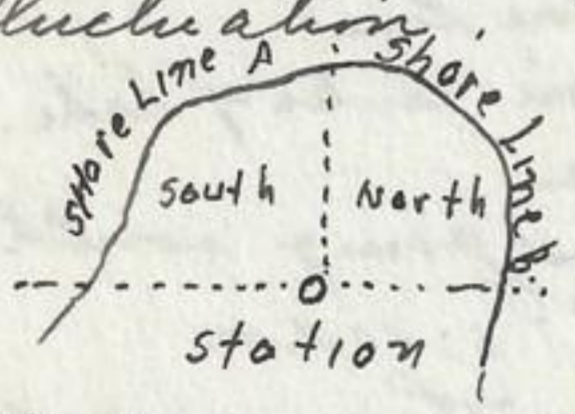 fluctuation.
Shore Line A
Shore Line B.
South
North
Station